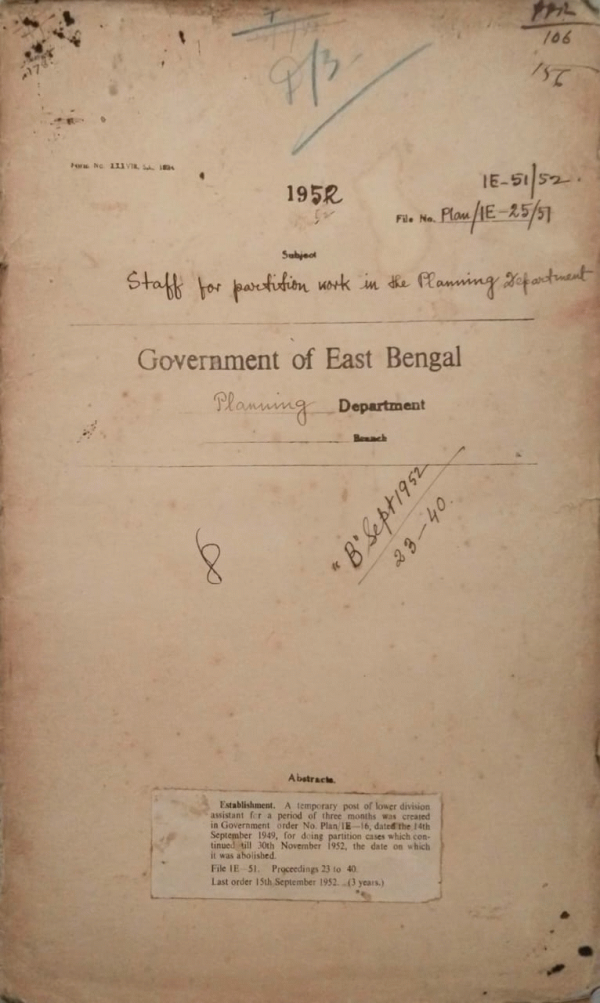 106
156
1952
52
1E-51/52.
File No. Plan/1E-25/51
Subject
Staff for partition work in the Planning Department
Government of East Bengal
Planning Department
Branch
"B" Sept 1952
23-40.
Abstracts.
Establishment. A temporary post of lower division
assistant for a period of three months was created
in Government order No. Plan/1E—16, dated the 14th
September 1949, for doing partition cases which con-
tinued till 30th November 1952, the date on which
it was abolished.
File 1E—51. Proceedings 23 to 40.
Last order 15th September 1952. (3 years.)